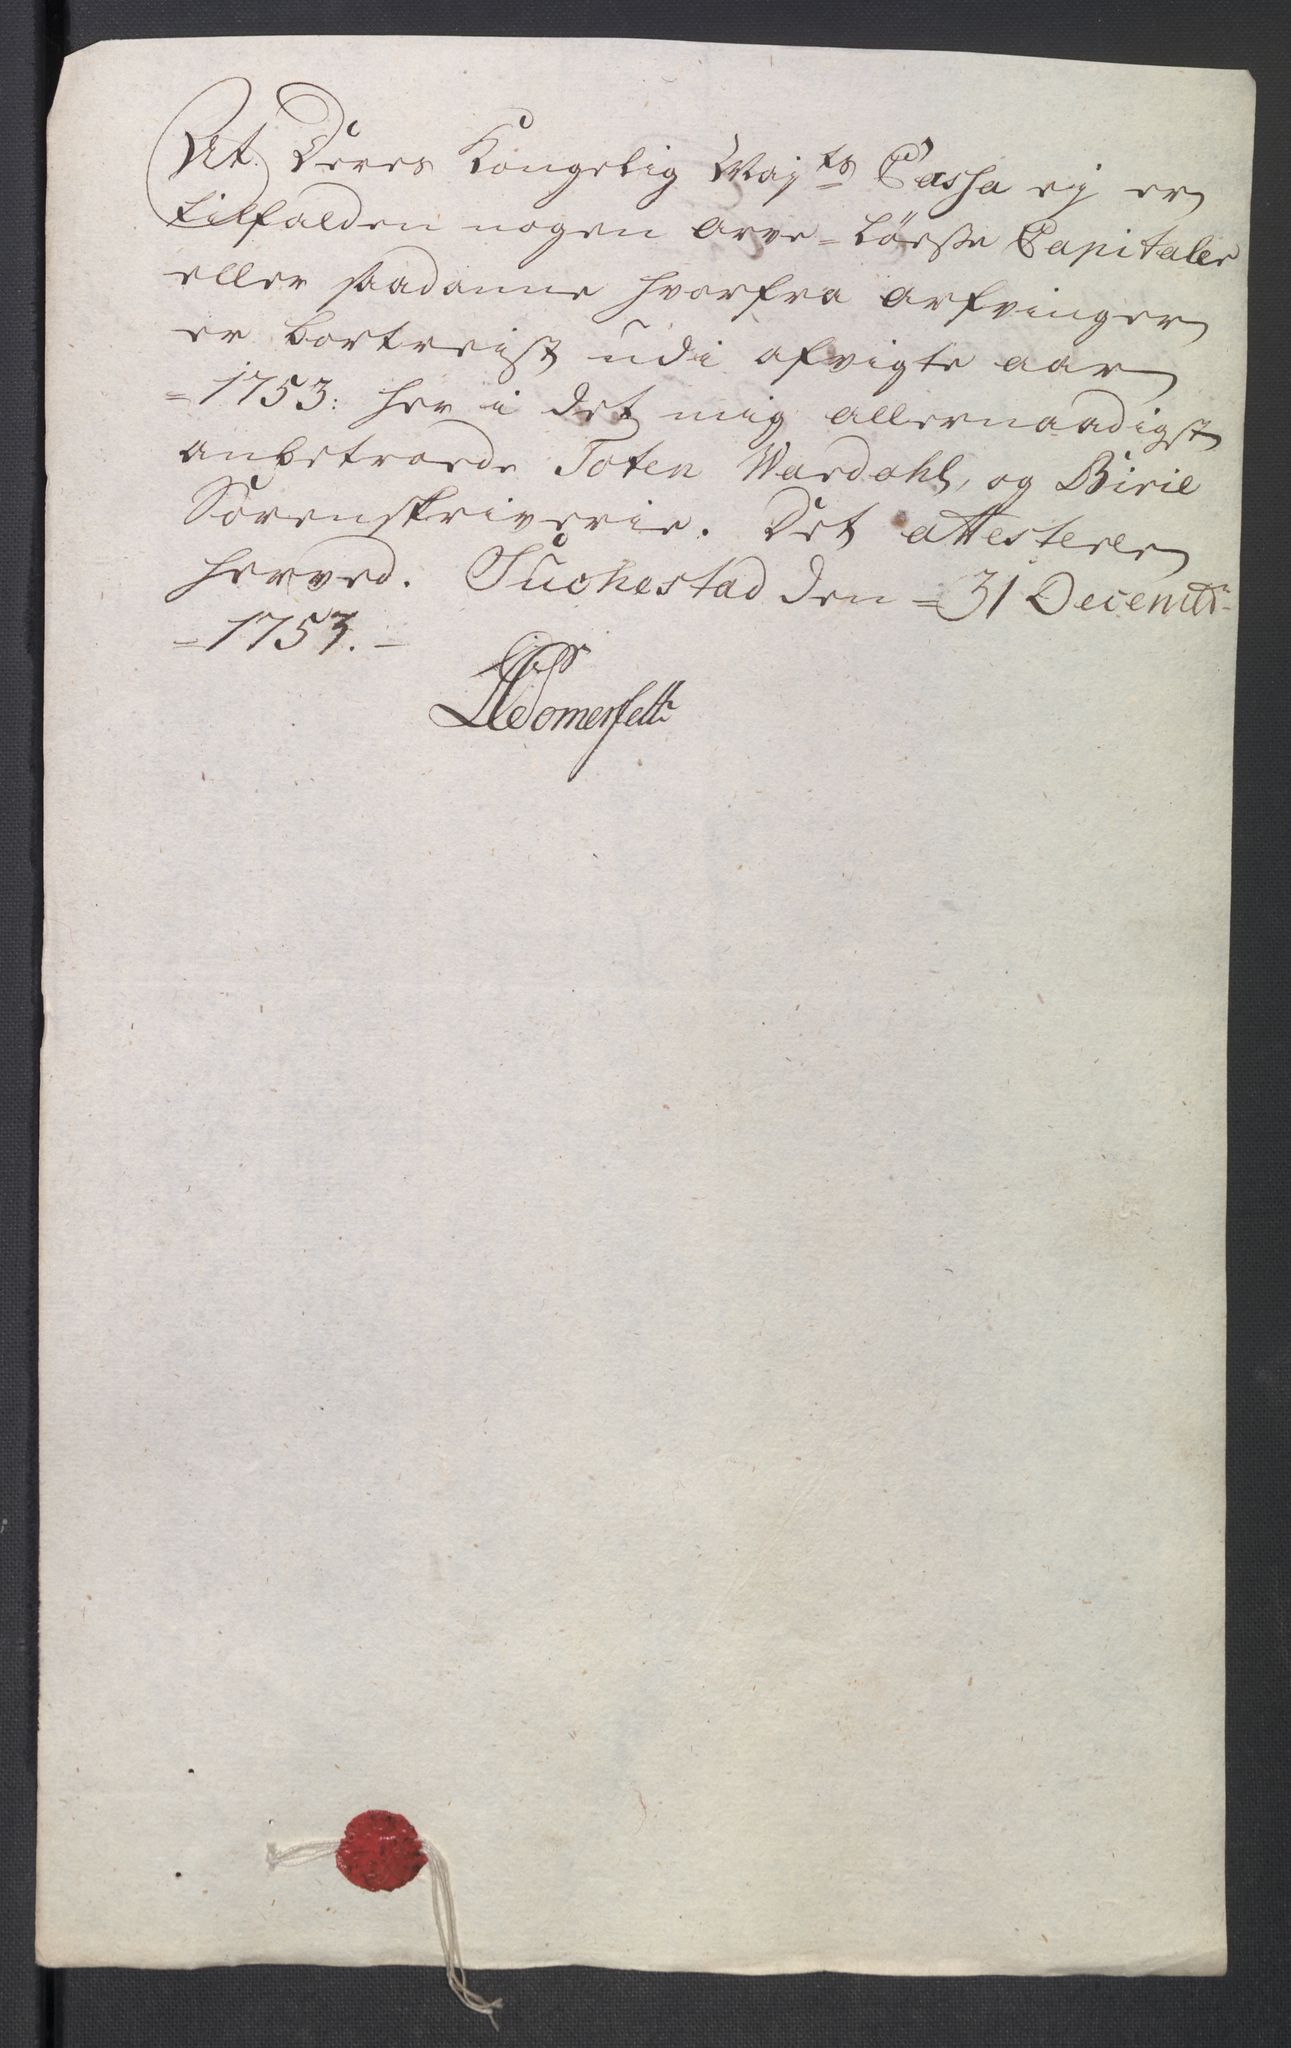 At Deres Kongelig Maj<sup>ts</sup> Cassa ej er
tilfalden nogen arve-løeße Capitaler
eller saadanne hvorfra arfvinger
er bortreist udi afvigte aar
=1753: her i det mig allernaadigst
anbetroede Toten Wardahl, og Birie
Sorenskriverie. Det attesterer
herved. Suchestad den =31 Decembr
=1753.=
Somerfelt